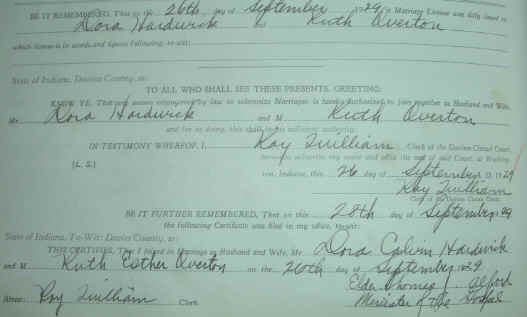 BE IT REMEMBERED, That on this 26th day of September 1929 a Marriage License was duly issued to
Dora Hardwick to Ruth Overton
which license is in words and figures following, to-wit:
State of Indiana, Daviess County, ss:
TO ALL WHO SHALL SEE THESE PRESENTS, GREETING:
KNOW YE, That any person empowered by law to solemnize Marriages is hereby authorized to join together as Husband and Wife,
Mr. Dora Hardwick and M Ruth Overton
and for so doing, this shall be his sufficient authority.
IN TESTIMONY WHEREOF, I, Roy Quilliam Clerk of the Daviess Circuit Court,
hereunto subscribe my name and affix the seal of said Court, at Washing-
(L. S.) ton, Indiana, this 26 day of September A. D. 1929
Roy Quilliam
Clerk of the Daviess Circuit Court.
BE IT FURTHER REMEMBERED, That on this 28th day of September 1929
the following Certificate was filed in my office, to-wit:
State of Indiana, To-Wit: Daviess County, ss:
THIS CERTIFIES, That I joined in Marriage as Husband and Wife, Mr. Dora Calvin Hardwick
and M Ruth Esther Overton on the 26th day of September 1929
Elder Thomas J. Alford
Attest: Roy Quilliam Clerk Minister of the Gospel